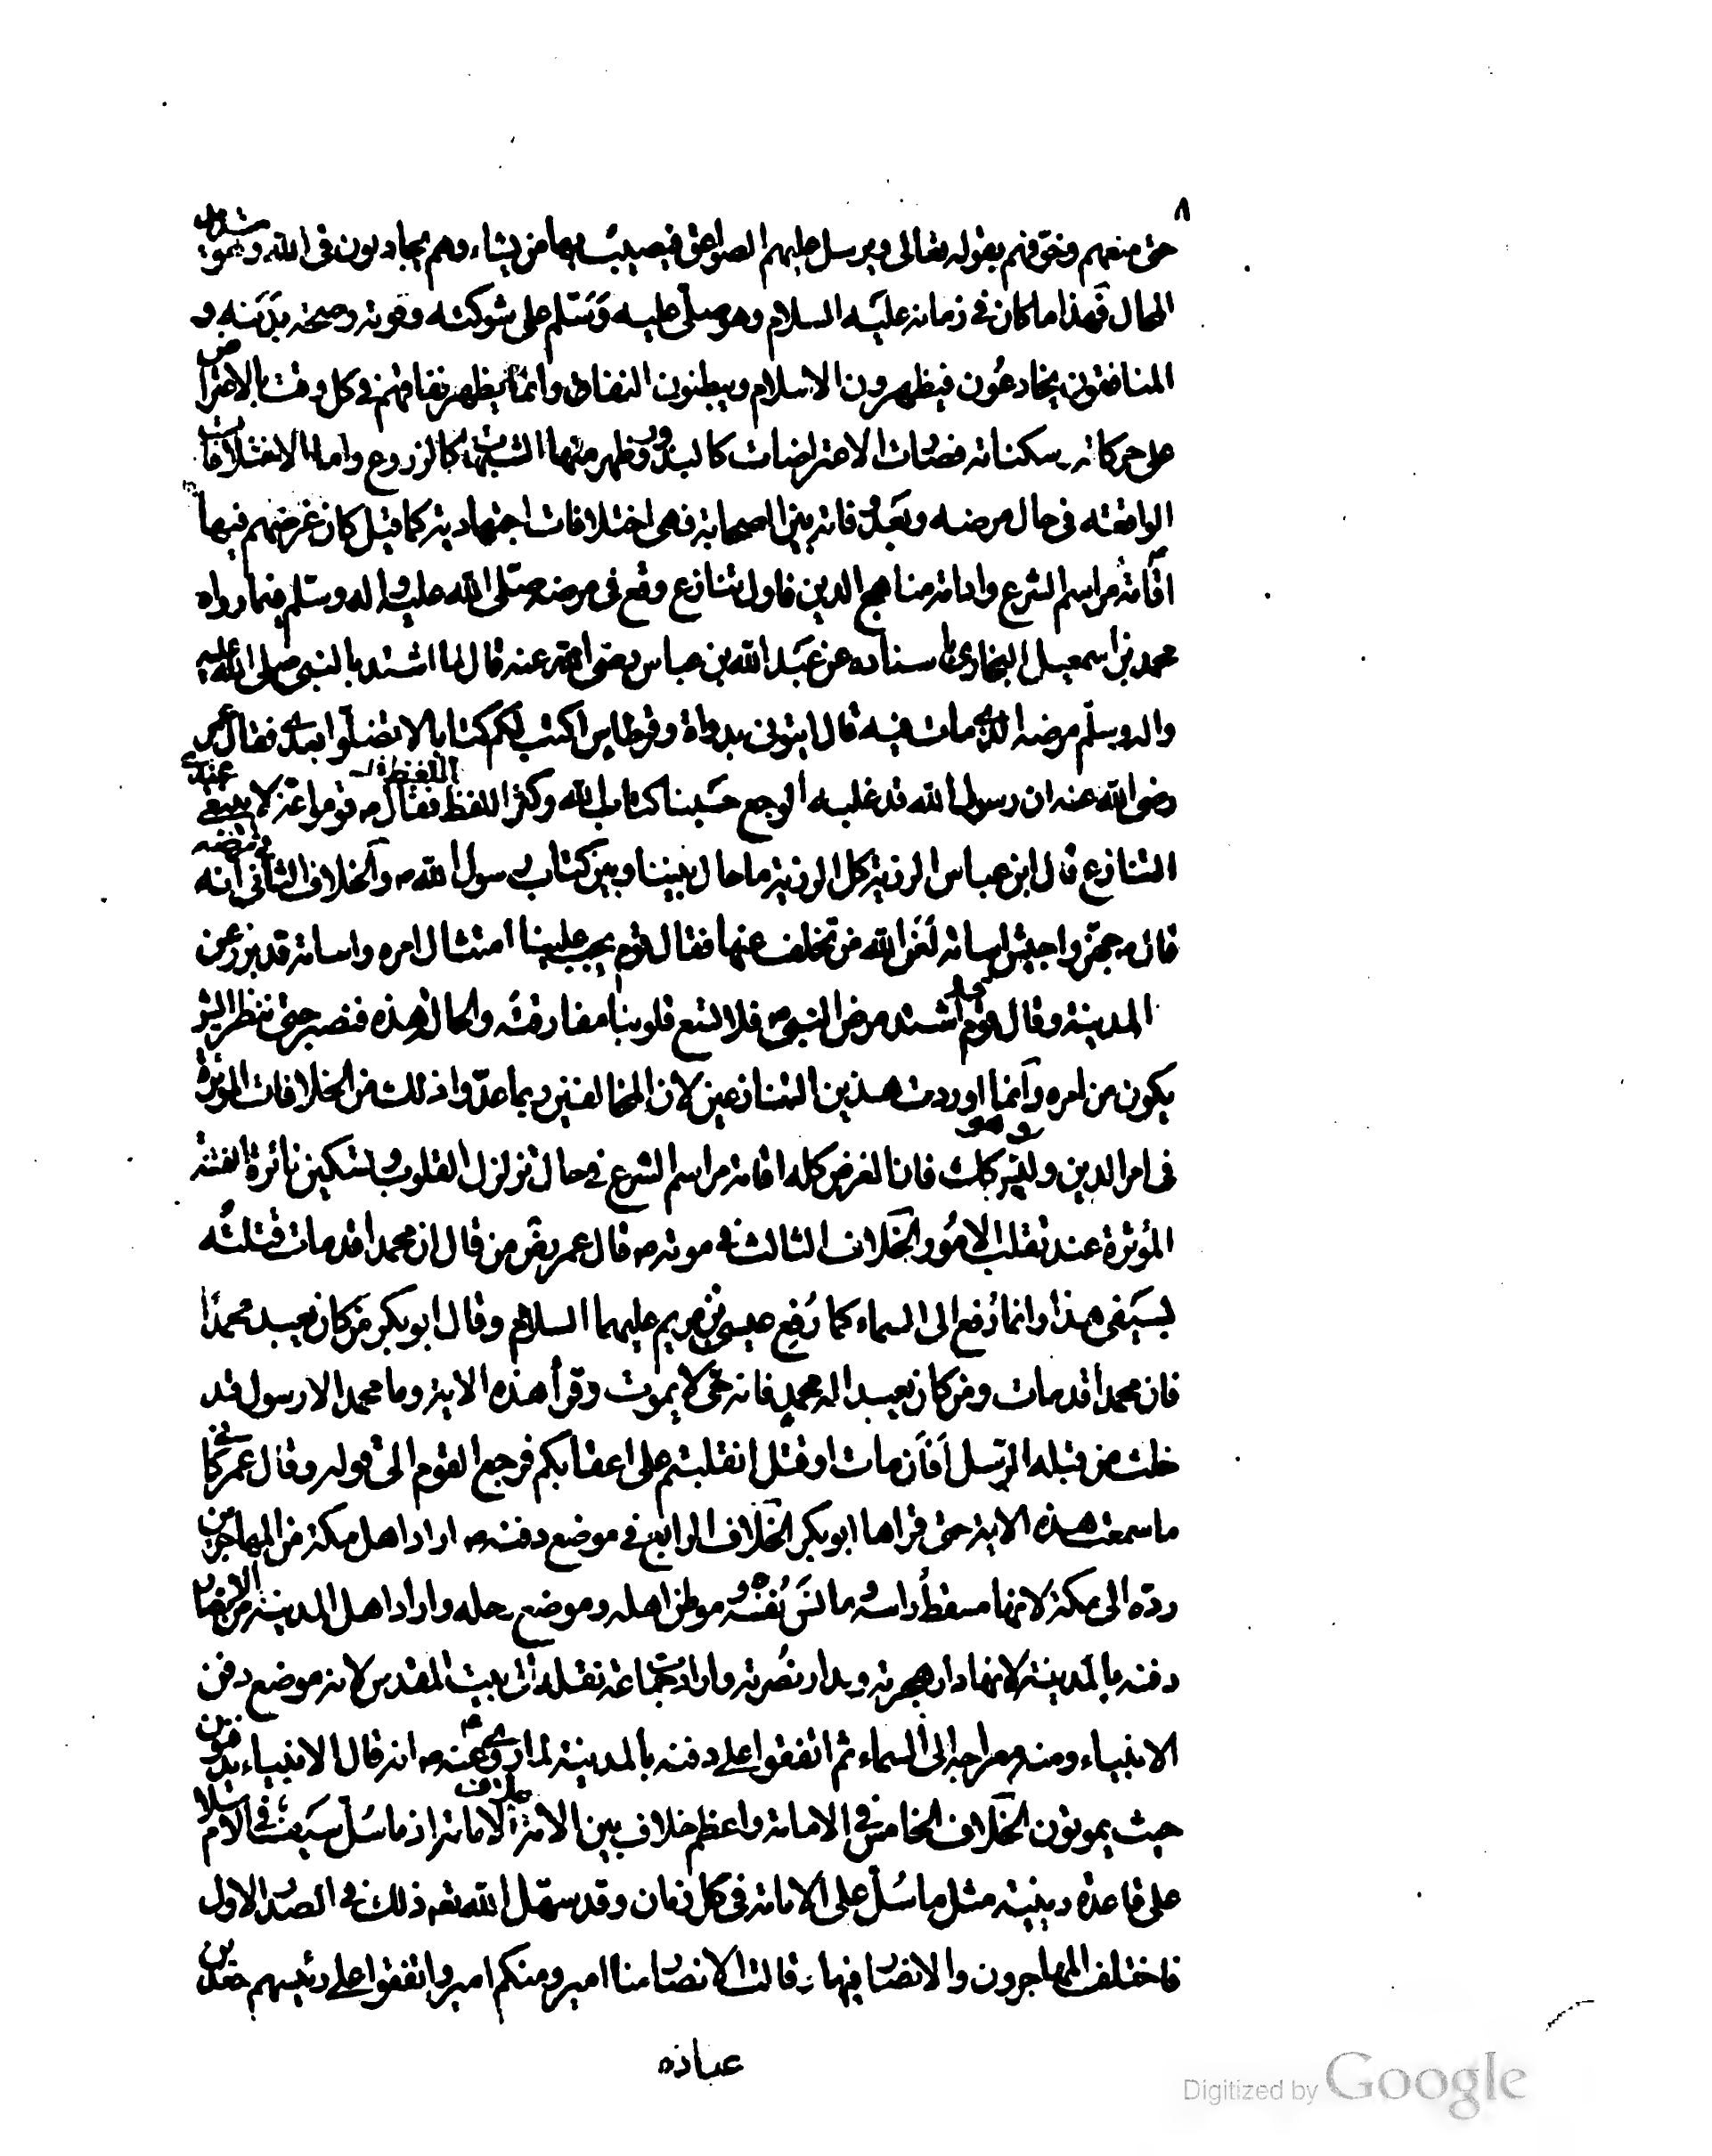 ٨
حتى منعهم وخوّفهم بقوله تعالى ويرسل عليهم الصواعق فيصيب بها من يشاء وهم يجادلون في الله وهو شديد
المحال فهذا ما كان في زمانه عليه السلام وهو صلى عليه وسلم على شوكته وقوته وصحة بدنه و
المنافقون يخادعون فيظهرون الاسلام ويبطنون النفاق وانما يظهر نفاقهم في كل وقت بالاعتراض
على حركاته سكناته فصارت الاعتراضات كالبذور وظهر منها الشبهات كالزروع واما الاختلافات
الواقعة في حال مرضه وبعد وفاته بين الصحابة فهى اختلافات اجتهادية كما قيل كان غرضهم فيها
اقامة مراسم الشرع وادامة مناهج الدين فاول تنازع وقع في مرضه صلى الله عليه واله وسلم فيما رواه
محمد بن اسمعيل البخارى باسناده عن عبد الله بن عباس رضى الله عنه قال لما اشتد بالنبى صلى الله عليه
واله وسلم مرضه الذى مات فيه قال ايتونى بدواة وقرطاس اكتب لكم كتابا لا تضلوا بعدى فقال عمر
رضى الله عنه ان رسول الله قد غلبه الوجع حسبنا كتاب الله وكثر اللغط فقال ص قوموا عنى لا ينبغى عندى
التنازع قال ابن عباس الرزية كل الرزية ما حال بيننا وبين كتاب رسول الله ص والخلاف الثانى في مرضه انه
قال ص جهزوا جيش اسامة لعن الله من تخلف عنها فقال قوم يجب علينا امتثال امره واسامة قد برز عن
المدينة وقال قوم قد اشتد مرض النبى ص فلا تسع قلوبنا مفارقته والحال هذه فنصبر حتى ننظر ايش
يكون من امره وانما اوردت هذين التنازعين لان المخالفين ربما عدوا ذلك من الخلافات المؤثرة
في امر الدين وهو ليس كذلك فان الغرض كله اقامة مراسم الشرع في حال تزلزل القلوب وتسكين نائرة الفتنة
المؤثرة عند تقلب الامور الخلاف الثالث في موته ص قال عمر بن من قال ان محمدا قد مات قتلته
بسيفى هذا وانما رفع الى السماء كما رفع عيسى بن مريم عليهما السلام وقال ابو بكر من كان يعبد محمدا
فان محمدا قد مات ومن كان يعبد اله محمد فانه حى لا يموت وقرأ هذه الاية وما محمد الا رسول قد
خلت من قبله الرسل أفان مات او قتل انقلبتم على اعقابكم فرجع القوم الى قوله وقال عمر كانى
ما سمعت هذه الاية حتى قراها ابو بكر الخلاف الرابع في موضع دفنه ص اراد اهل مكة من المهاجرين
ردّه الى مكة لانها مسقط راسه ومانس نفسه وموطن اهله وموضع رحله واراد اهل المدينة من الانصار
دفنه بالمدينة لانها دار هجرته ودار نصرته وارادت جماعة نقله الى بيت المقدس لانه موضع دفن
الانبياء ومنه معراجه الى السماء ثم اتفقوا على دفنه بالمدينة لما روى عنه ص انه قال الانبياء يدفنون
حيث يموتون الخلاف الخامس في الامامة واعظم خلاف بين الامة خلاف الامامة اذ ما سُلّ سيف في الاسلام
على قاعدة دينية مثل ما سُلّ على الامامة في كل زمان وقد سهل الله تعه ذلك في الصدر الاول
فاختلف المهاجرون والانصار فيها وقالت الانصار منا امير ومنكم امير واتفقوا على رئيسهم سعد بن
عباده
Digitized by Google